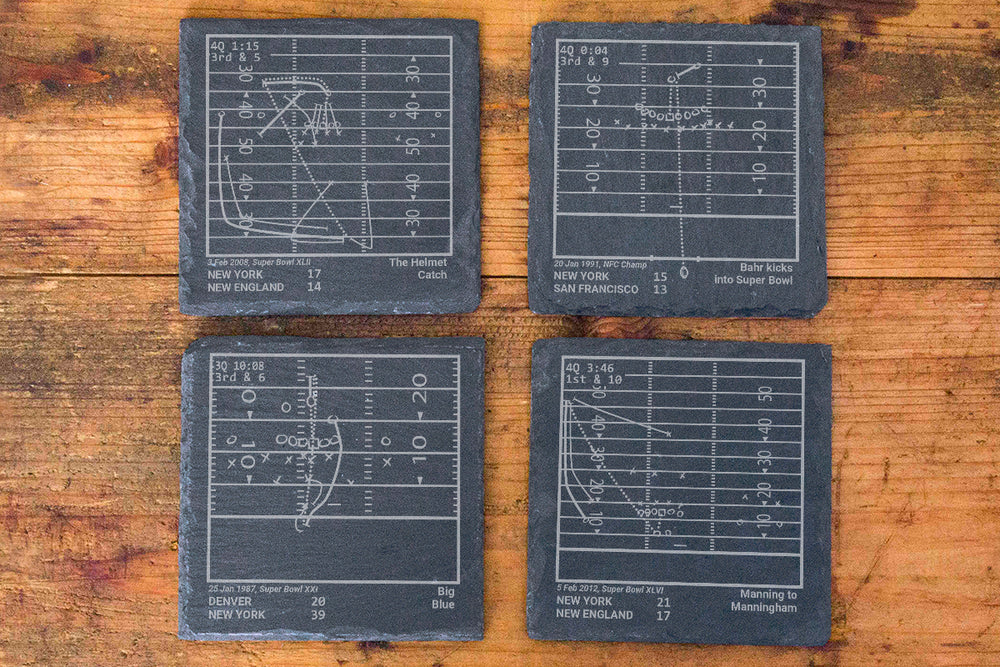 4Q 1:15
3rd & 5
30 30
40 40
50 50
40 40
30 30
3 Feb 2008, Super Bowl XLII
The Helmet
Catch
NEW YORK 17
NEW ENGLAND 14
4Q 0:04
3rd & 9
30 30
20 20
10 10
20 Jan 1991, NFC Champ
Bahr kicks
into Super Bowl
NEW YORK 15
SAN FRANCISCO 13
3Q 10:08
3rd & 6
20
10 10
25 Jan 1987, Super Bowl XXI
Big
Blue
DENVER 20
NEW YORK 39
4Q 3:46
1st & 10
50 50
40 40
30 30
20 20
10 10
5 Feb 2012, Super Bowl XLVI
Manning to
Manningham
NEW YORK 21
NEW ENGLAND 17